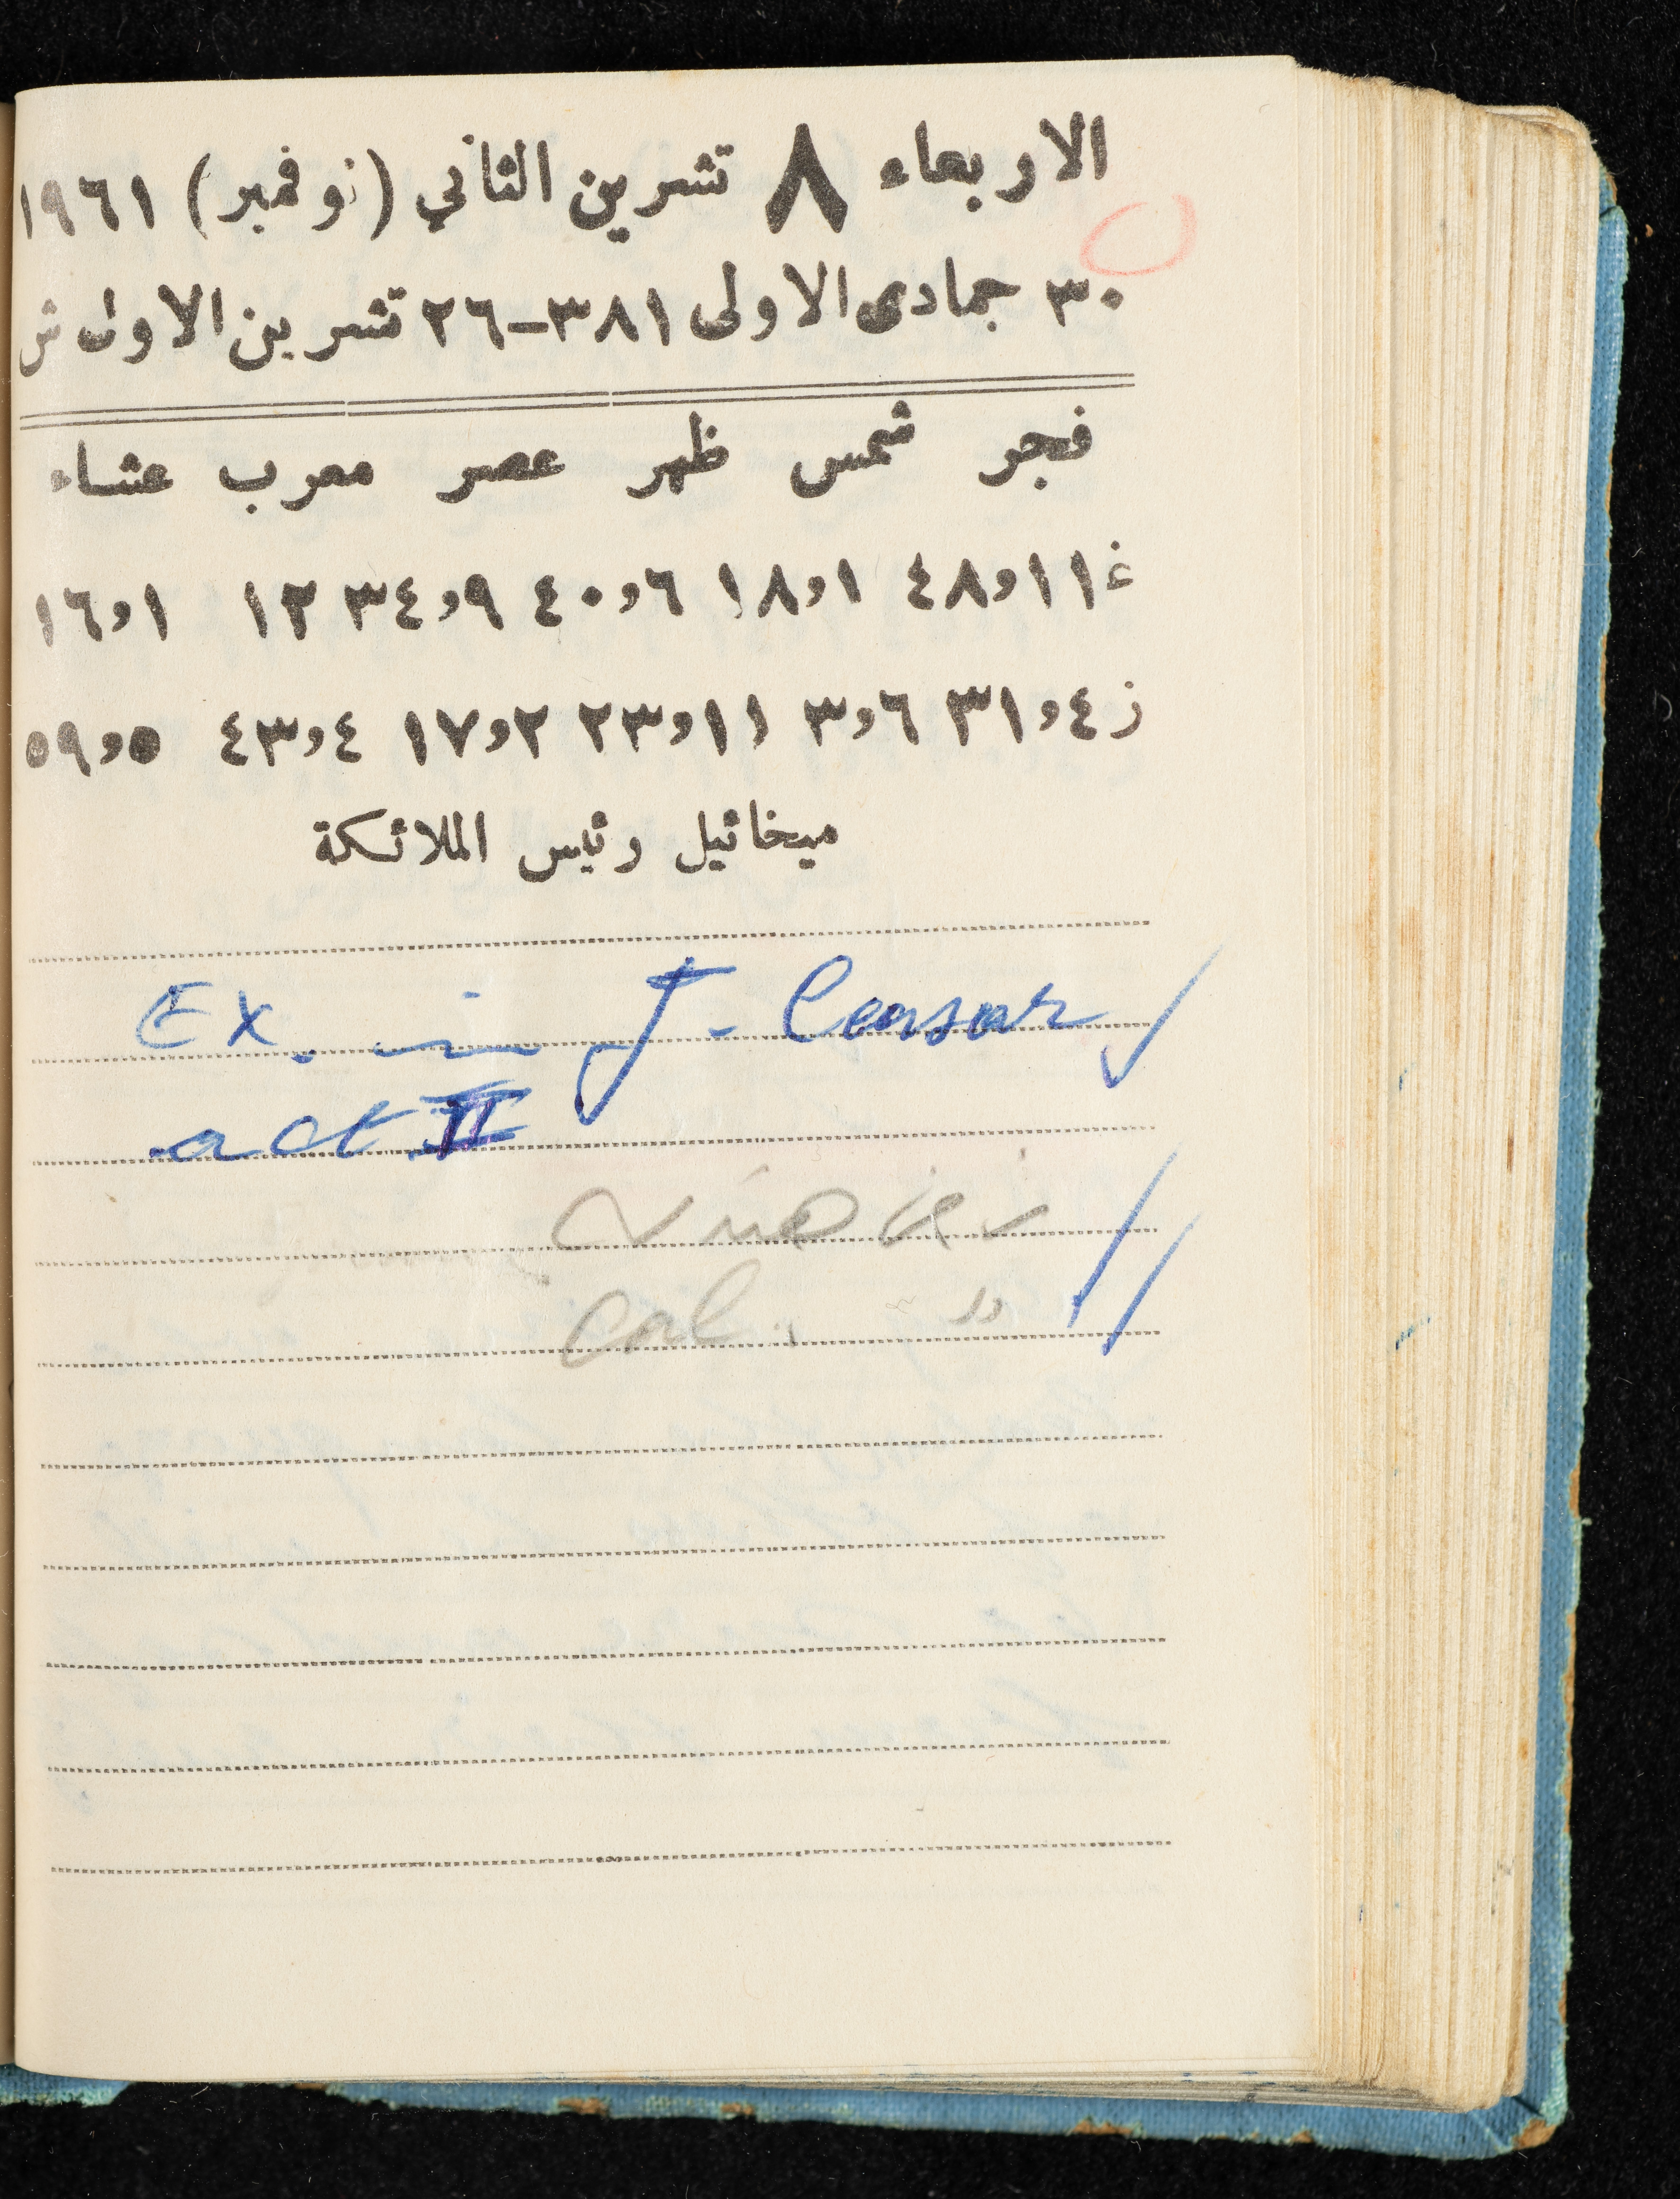 الاربعاء ٨ تشرين الثاني (نوفمبر) ١٩٦١
٣٠ جمادى الاولى ٣٨١-٢٦ تشرين الاول ش
فجر شمس ظهر عصر مغرب عشاء
غ ١١,٤٨ ١,١٨ ٦,٤٠ ٩,٣٤ ١٢ ١,١٦
ز ٤,٣١ ٦,٣ ١١,٢٣ ٢,١٧ ٤,٤٣ ٥,٥٩
ميخائيل رئيس الملائكة
Ex. in J-Ceasar
act II
Cal.